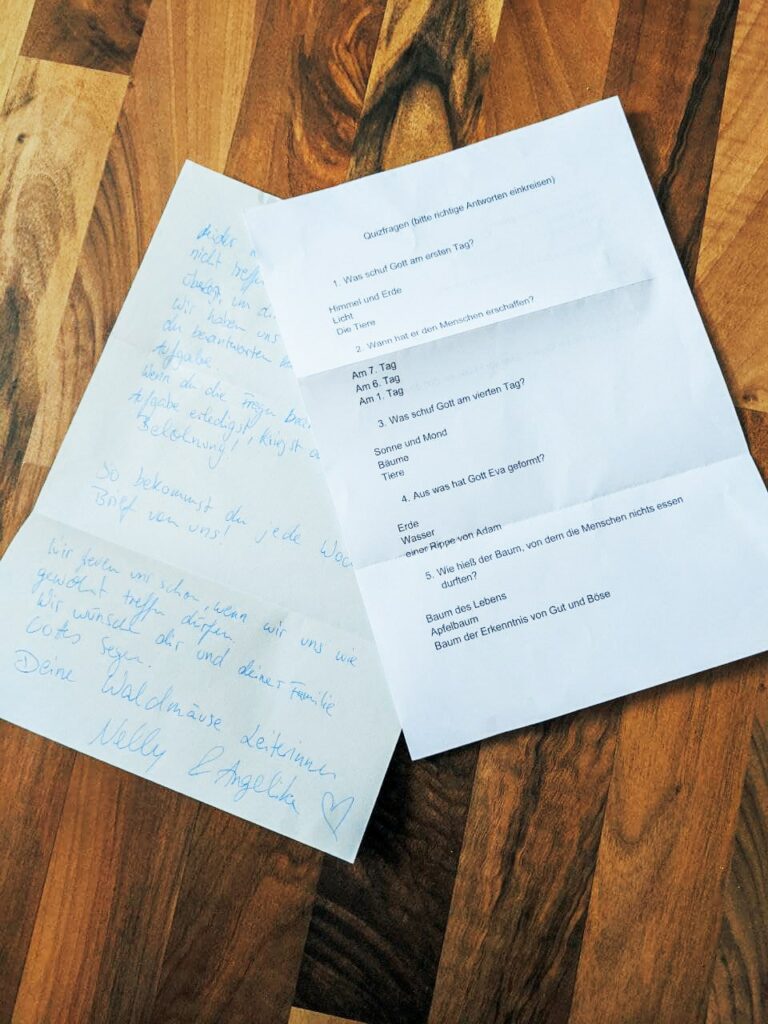 leider
nicht treffen
um
wir haben uns
du beantworten
Aufgabe.
Wenn du die Fragen
Aufgabe erledigst, kriegst
Belohnung!
So bekommst du jede
Brief von uns!
Wir freuen uns schon, wenn wir uns wie
gewohnt treffen dürfen.
Wir wünschen dir und deiner Familie
Gottes Segen.
Deine Waldmäuse Leiterinnen
Nelly & Angelika
Quizfragen (bitte richtige Antworten einkreisen)
1. Was schuf Gott am ersten Tag?
Himmel und Erde
Licht
Die Tiere
2. Wann hat er den Menschen erschaffen?
Am 7. Tag
Am 6. Tag
Am 1. Tag
3. Was schuf Gott am vierten Tag?
Sonne und Mond
Bäume
Tiere
4. Aus was hat Gott Eva geformt?
Erde
Wasser
einer Rippe von Adam
5. Wie hieß der Baum, von dem die Menschen nichts essen
durften?
Baum des Lebens
Apfelbaum
Baum der Erkenntnis von Gut und Böse